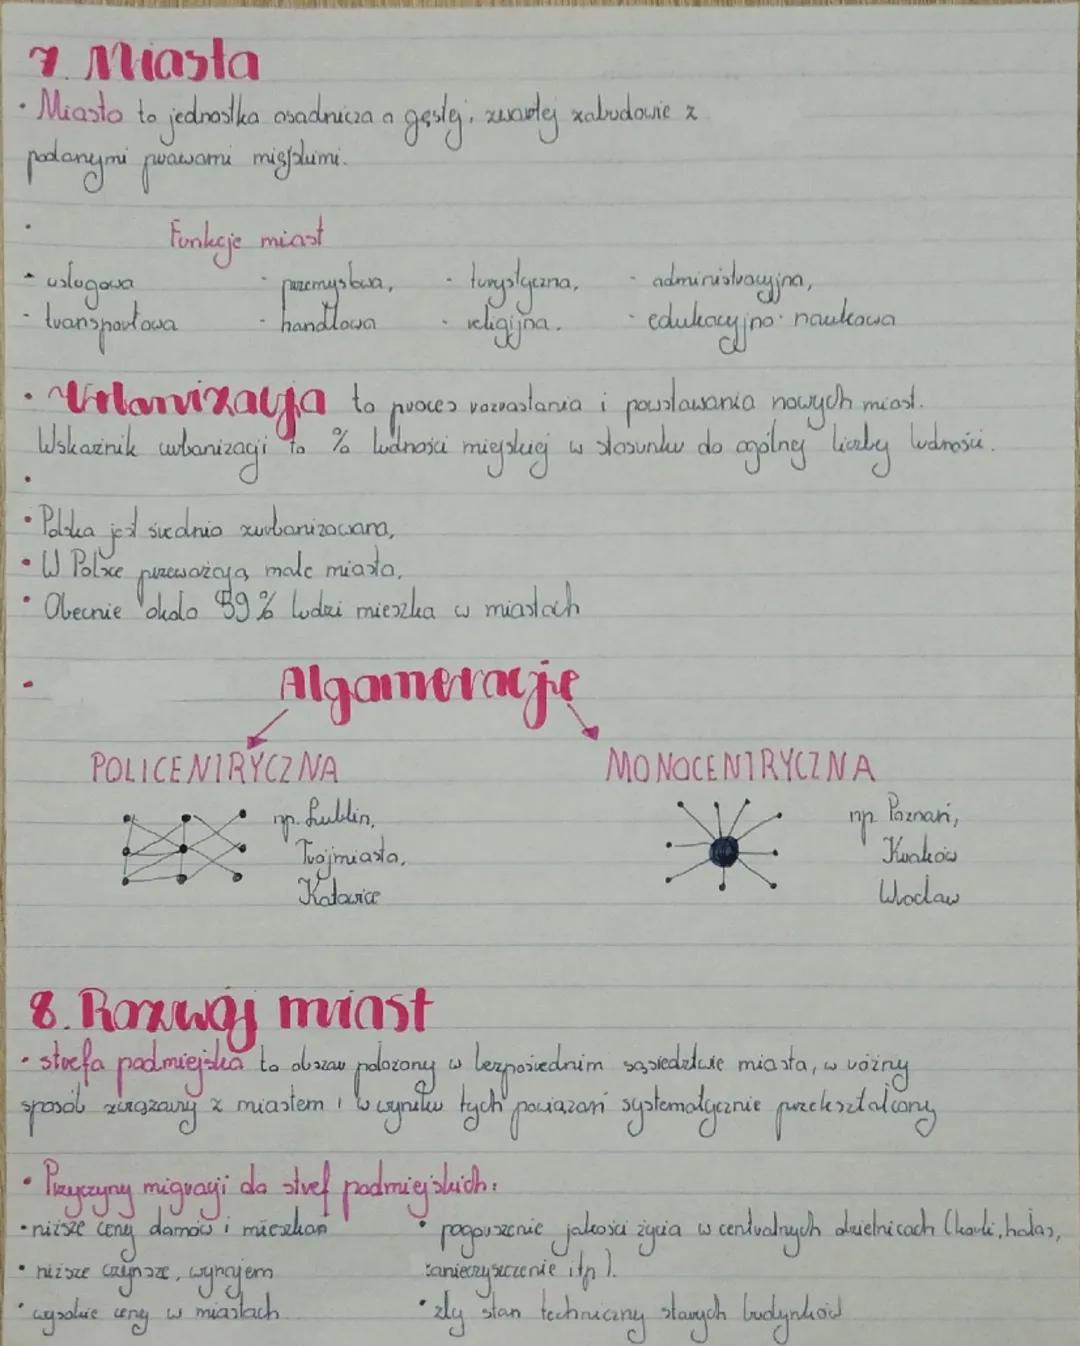 7. Miasta
• Miasto to jednostka osadnicza o gęstej, zwartej zabudowie z
podanymi prawami miejskimi.
• Funkcje miast
- usługowa - przemysłowa, - turystyczna, - administracyjna,
- transportowa - handlowa - religijna. - edukacyjno-naukowa
• Urbanizacja to proces rozrastania i powstawania nowych miast.
Wskaźnik urbanizacji to % ludności miejskiej w stosunku do ogólnej liczby ludności.
•
• Polska jest średnio zurbanizowana,
• W Polsce przeważają małe miasta,
• Obecnie około 59% ludzi mieszka w miastach
• Algameracje
POLICENTRYCZNA MONOCENTRYCZNA
np. Lublin, np. Poznań,
Trójmiasto, Kraków
Katowice Wrocław
8. Rozwój miast
• strefa podmiejska to obszar położony w bezpośrednim sąsiedztwie miasta, w różny
sposób związany z miastem i w wyniku tych powiązań systematycznie przekształcany
• Przyczyny migracji do stref podmiejskich:
• niższe ceny domów i mieszkań • pogorszenie jakości życia w centralnych dzielnicach (korki, hałas,
• niższe czynsze, wynajem zanieczyszczenie itp).
• wysokie ceny w miastach • zły stan techniczny starych budynków